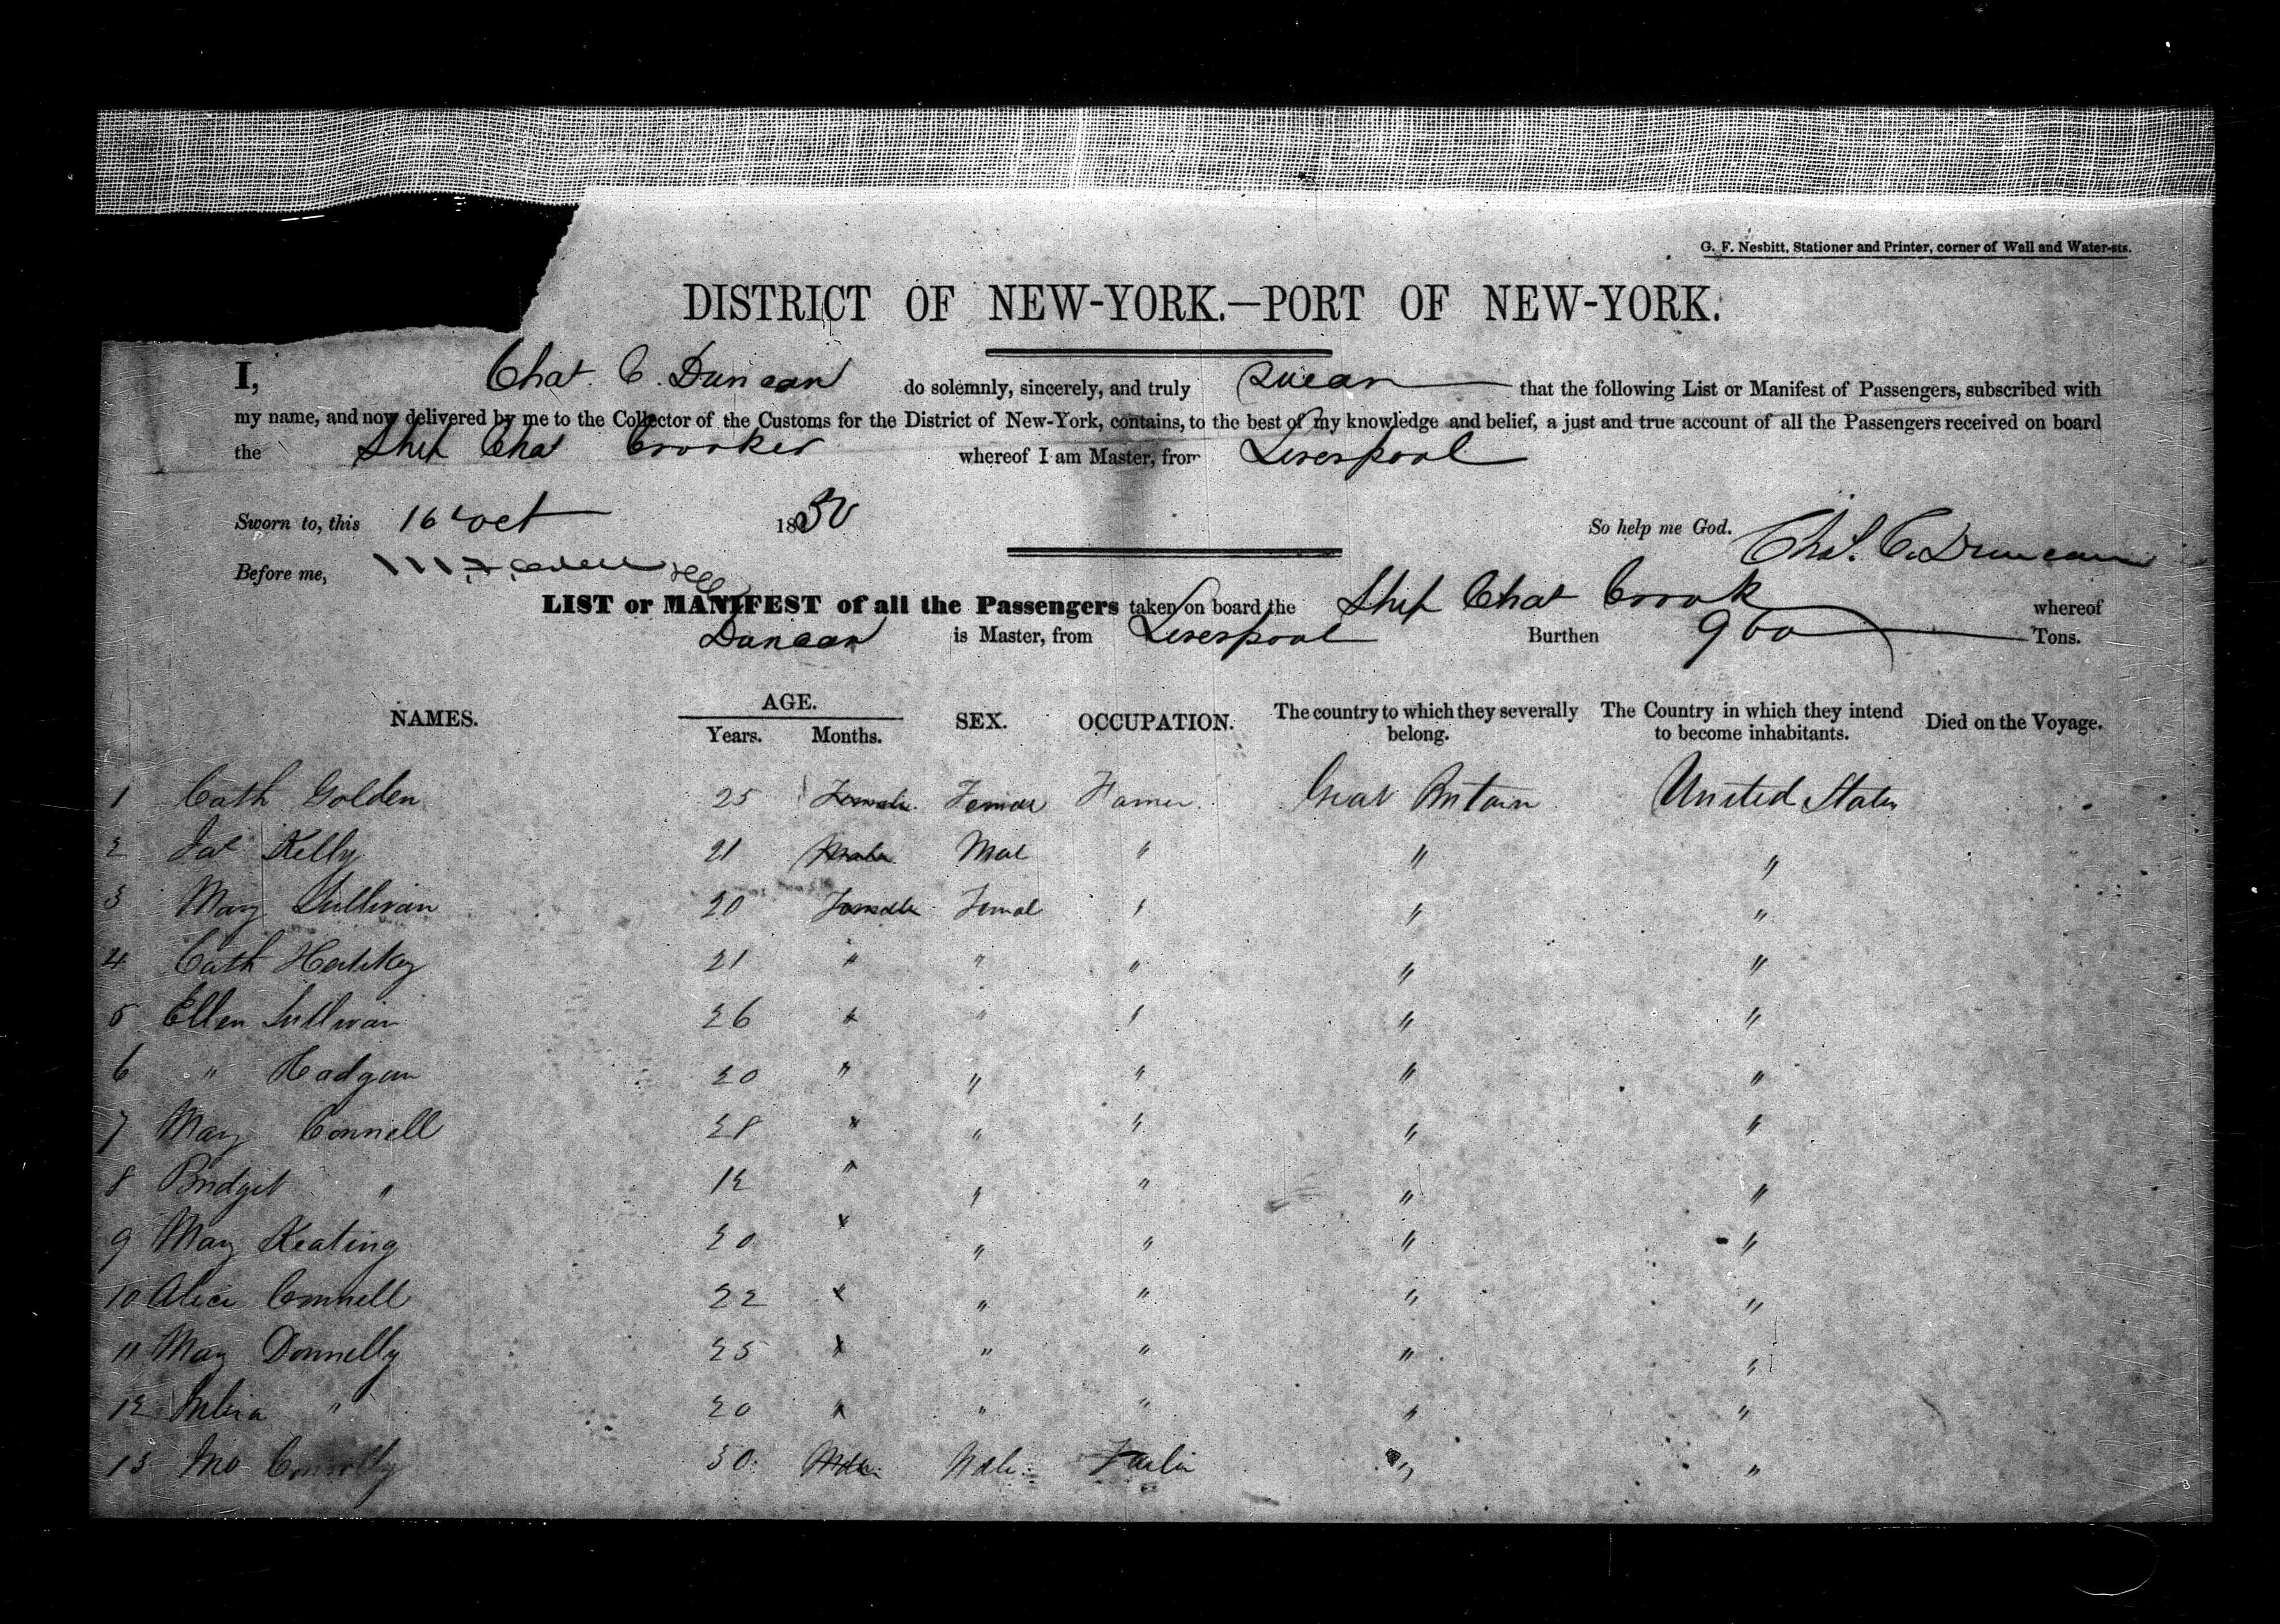 G. F. Nesbitt, Stationer and Printer, corner of Wall and Water-sts.
DISTRICT OF NEW-YORK.—PORT OF NEW-YORK.
I, Chas. C. Duncan do solemnly, sincerely, and truly swear that the following List or Manifest of Passengers, subscribed with
my name, and now delivered by me to the Collector of the Customs for the District of New-York, contains, to the best of my knowledge and belief, a just and true account of all the Passengers received on board
the Ship Chas Crooker whereof I am Master, from Liverpool
Sworn to, this 16 Oct 1850 So help me God. Chas. C. Duncan
Before me,
LIST or MANIFEST of all the Passengers taken on board the Ship Chas Crook whereof
Duncan is Master, from Liverpool Burthen 960 Tons.
NAMES. AGE. Years. Months. SEX. OCCUPATION. The country to which they severally belong. The Country in which they intend to become inhabitants. Died on the Voyage.
1 Cath Golden 25 Female Female Farmer Great Britain United States
2 Kelly 21 Male Mal " " "
3 Mary Sullivan 20 Female Femal " " "
4 Cath 21 " " " " "
5 Ellen Sullivan 26 " " " " "
6 " Hadgan 20 " " " " "
7 Mary Connell 28 " " " " "
8 Bridget " 12 " " " " "
9 Mary Keating 20 " " " " "
10 Alice Connell 22 " " " " "
11 Mary Donnelly 25 " " " " "
12 " 20 " " " " "
13 Jno Connolly 30 Male Male " "